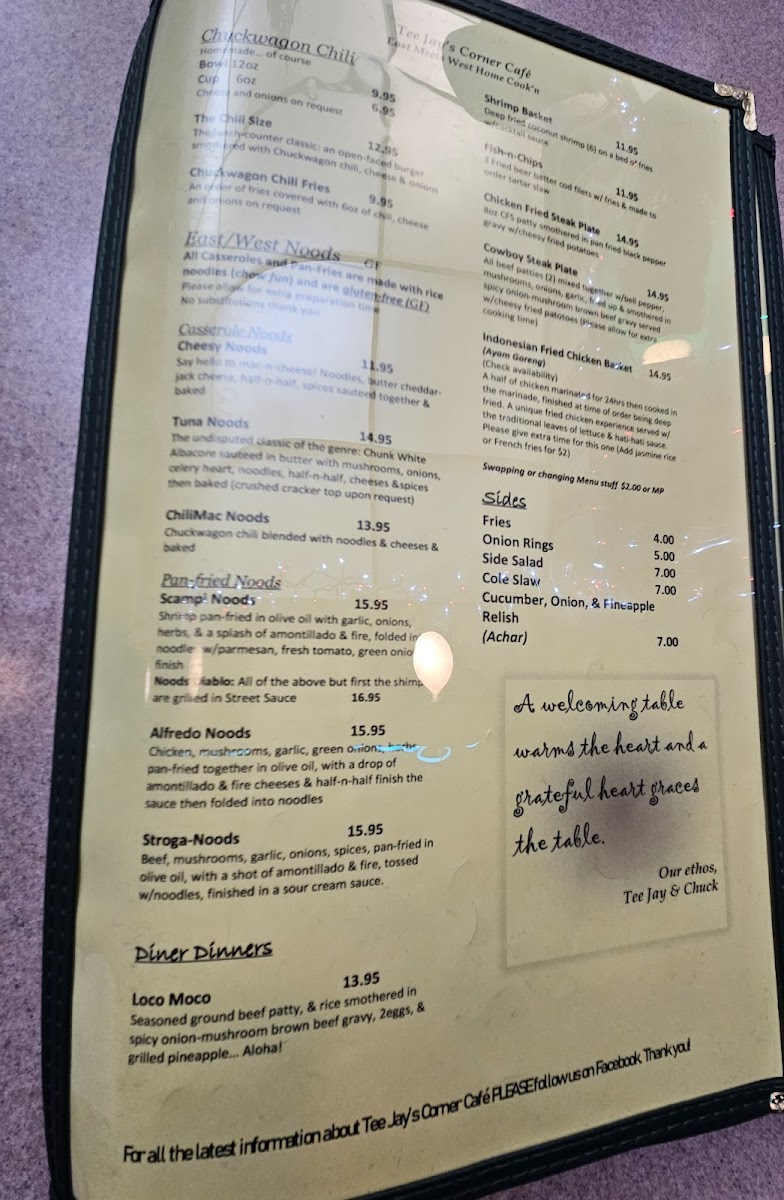 Tee Jay's Corner Café
East Meets West Home Cook'n
Chuckwagon Chili
Homemade... of course
Bowl 12oz 9.95
Cup 6oz 6.95
Cheese and onions on request
The Chili Size 12.95
The lunch-counter classic: an open-faced burger
smothered with Chuckwagon chili, cheese & onions
Chuckwagon Chili Fries 9.95
An order of fries covered with 6oz of chili, cheese
and onions on request
East/West Noods GF
All Casseroles and Pan-Fries are made with rice
noodles (chow fun) and are gluten-free (GF)
Please allow for extra preparation time
No substitutions thank you
Casserole Noods
Cheesy Noods 11.95
Say hello to mac n cheese! Noodles, butter cheddar-
jack cheese, half-n-half, spices sauteed together &
baked
Tuna Noods 14.95
The undisputed classic of the genre: Chunk White
Albacore sauteed in butter with mushrooms, onions,
celery heart, noodles, half-n-half, cheeses &spices
then baked (crushed cracker top upon request)
ChiliMac Noods 13.95
Chuckwagon chili blended with noodles & cheeses &
baked
Pan-fried Noods
Scampi Noods 15.95
Shrimp pan-fried in olive oil with garlic, onions,
herbs, & a splash of amontillado & fire, folded in
noodles w/parmesan, fresh tomato, green onion
finish
Noods Diablo: All of the above but first the shimp
are grilled in Street Sauce 16.95
Alfredo Noods 15.95
Chicken, mushrooms, garlic, green onions, herbs
pan-fried together in olive oil, with a drop of
amontillado & fire cheeses & half-n-half finish the
sauce then folded into noodles
Stroga-Noods 15.95
Beef, mushrooms, garlic, onions, spices, pan-fried in
olive oil, with a shot of amontillado & fire, tossed
w/noodles, finished in a sour cream sauce.
Diner Dinners
Loco Moco 13.95
Seasoned ground beef patty, & rice smothered in
spicy onion-mushroom brown beef gravy, 2eggs, &
grilled pineapple... Aloha!
Shrimp Basket 11.95
Deep fried coconut shrimp (6) on a bed of fries
w/cocktail sauce
Fish-n-Chips 11.95
3 Fried beer batter cod filets w/ fries & made to
order tartar slaw
Chicken Fried Steak Plate 14.95
8oz CFS patty smothered in pan fried black pepper
gravy w/cheesy fried potatoes
Cowboy Steak Plate 14.95
All beef patties (2) mixed together w/bell pepper,
mushrooms, onions, garlic, fried up & smothered in
spicy onion-mushroom brown beef gravy served
w/cheesy fried patotoes (Please allow for extra
cooking time)
Indonesian Fried Chicken Basket 14.95
(Ayam Goreng)
(Check availability)
A half of chicken marinated for 24hrs then cooked in
the marinade, finished at time of order being deep
fried. A unique fried chicken experience served w/
the traditional leaves of lettuce & hati-hati sauce.
Please give extra time for this one (Add jasmine rice
or French fries for $2)
Swapping or changing Menu stuff $2.00 or MP
Sides
Fries 4.00
Onion Rings 5.00
Side Salad 7.00
Cole Slaw 7.00
Cucumber, Onion, & Pineapple
Relish
(Achar) 7.00
A welcoming table
warms the heart and a
grateful heart graces
the table.
Our ethos,
Tee Jay & Chuck
For all the latest information about Tee Jay's Corner Café PLEASE follow us on Facebook. Thank you!